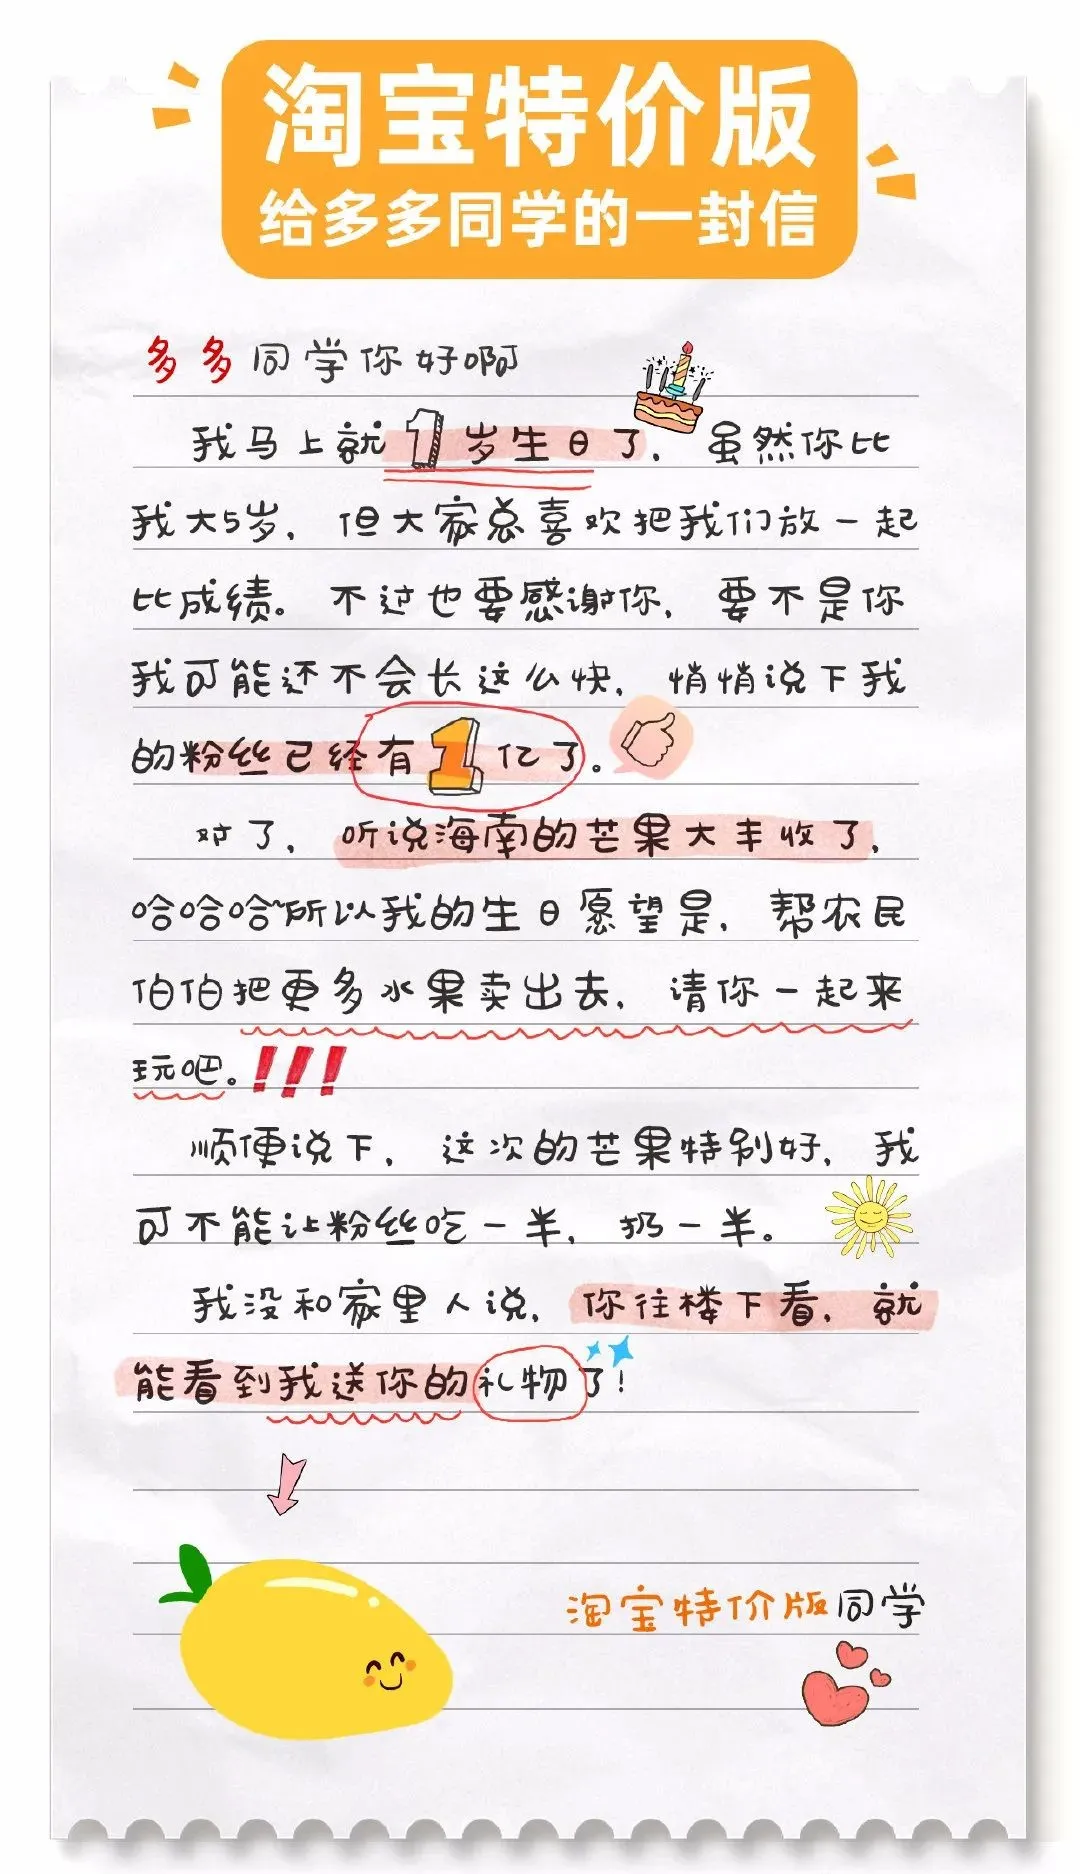 淘宝特价版
给多多同学的一封信
多多同学你好啊
我马上就1岁生日了，虽然你比
我大5岁，但大家总喜欢把我们放一起
比成绩。不过也要感谢你，要不是你
我可能还不会长这么快，悄悄说下我
的粉丝已经有1亿了。
对了，听说海南的芒果大丰收了，
哈哈哈~所以我的生日愿望是，帮农民
伯伯把更多水果卖出去，请你一起来
玩吧。!!!
顺便说下，这次的芒果特别好，我
可不能让粉丝吃一半，扔一半。
我没和家里人说，你往楼下看，就
能看到我送你的礼物了!
淘宝特价版同学